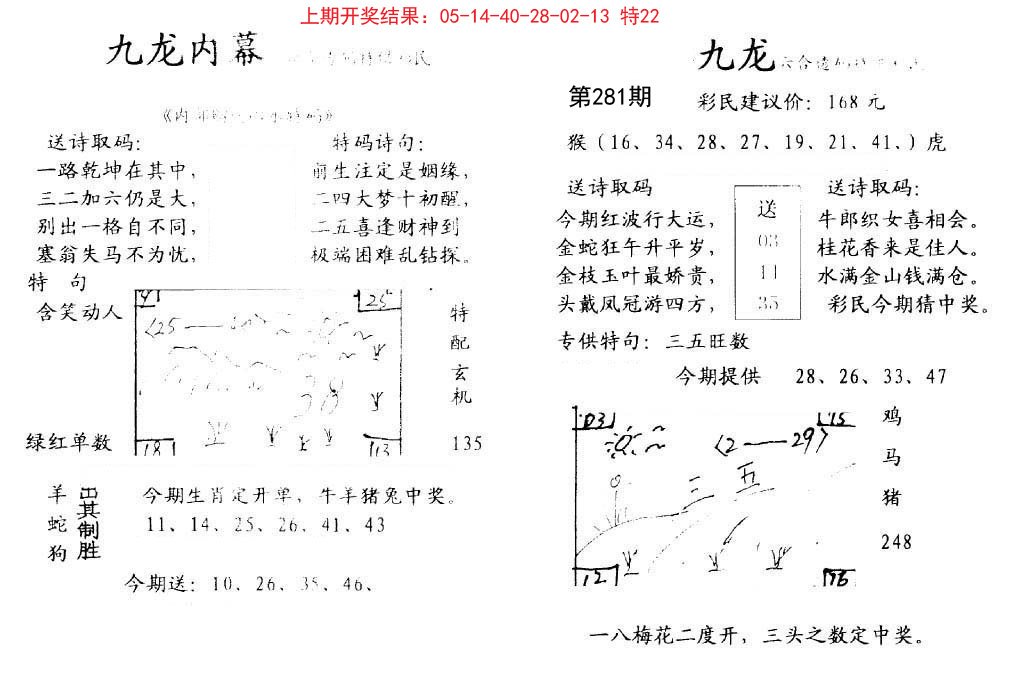 上期开奖结果：05-14-40-28-02-13 特22
九龙内幕
送诗取码：
一路乾坤在其中，
三二加六仍是大，
别出一格自不同，
塞翁失马不为忧，
特码诗句：
前生注定是姻缘，
二四大梦十初醒，
二五喜逢财神到
极端困难乱钻探。
特 句
含笑动人
绿红单数
41
25
〈25
38
181
113
特
配
玄
机
135
羊
蛇
狗
出其制胜
今期生肖定开单，牛羊猪兔中奖。
11、14、25、26、41、43
今期送：10、26、35、46、
九龙
第281期
彩民建议价：168 元
猴（16、34、28、27、19、21、41、）虎
送诗取码
今期红波行大运，
金蛇狂午升平岁，
金枝玉叶最娇贵，
头戴凤冠游四方，
送
03
11
35
送诗取码：
牛郎织女喜相会。
桂花香来是佳人。
水满金山钱满仓。
彩民今期猜中奖。
专供特句：三五旺数
今期提供 28、26、33、47
03
〈2——29〉
三 五
12
鸡
马
猪
248
一八梅花二度开，三头之数定中奖。